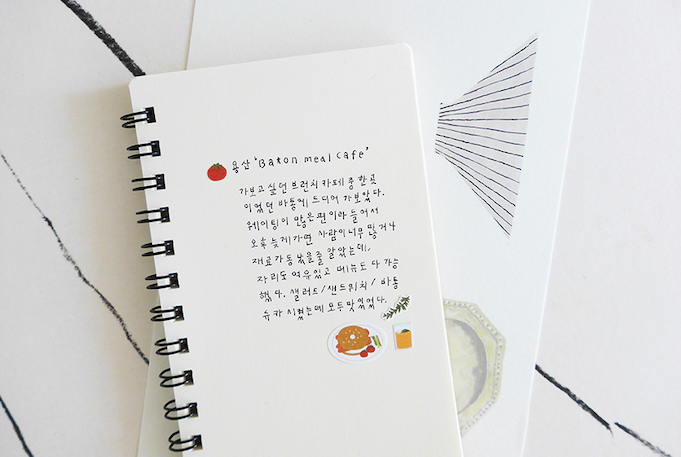 용산 'Baton meal cafe'
가보고 싶던 브런치 카페 중 한 곳
이었던 바통에 드디어 가보았다.
웨이팅이 많은 편이라 들어서
오후 늦게 가면 사람이 너무 많거나
재료가 동 났을줄 알았는데,
자리도 여유있고 메뉴도 다 가능
했다. 샐러드/샌드위치/바통
슈카 시켰는데 모두 맛있었다.